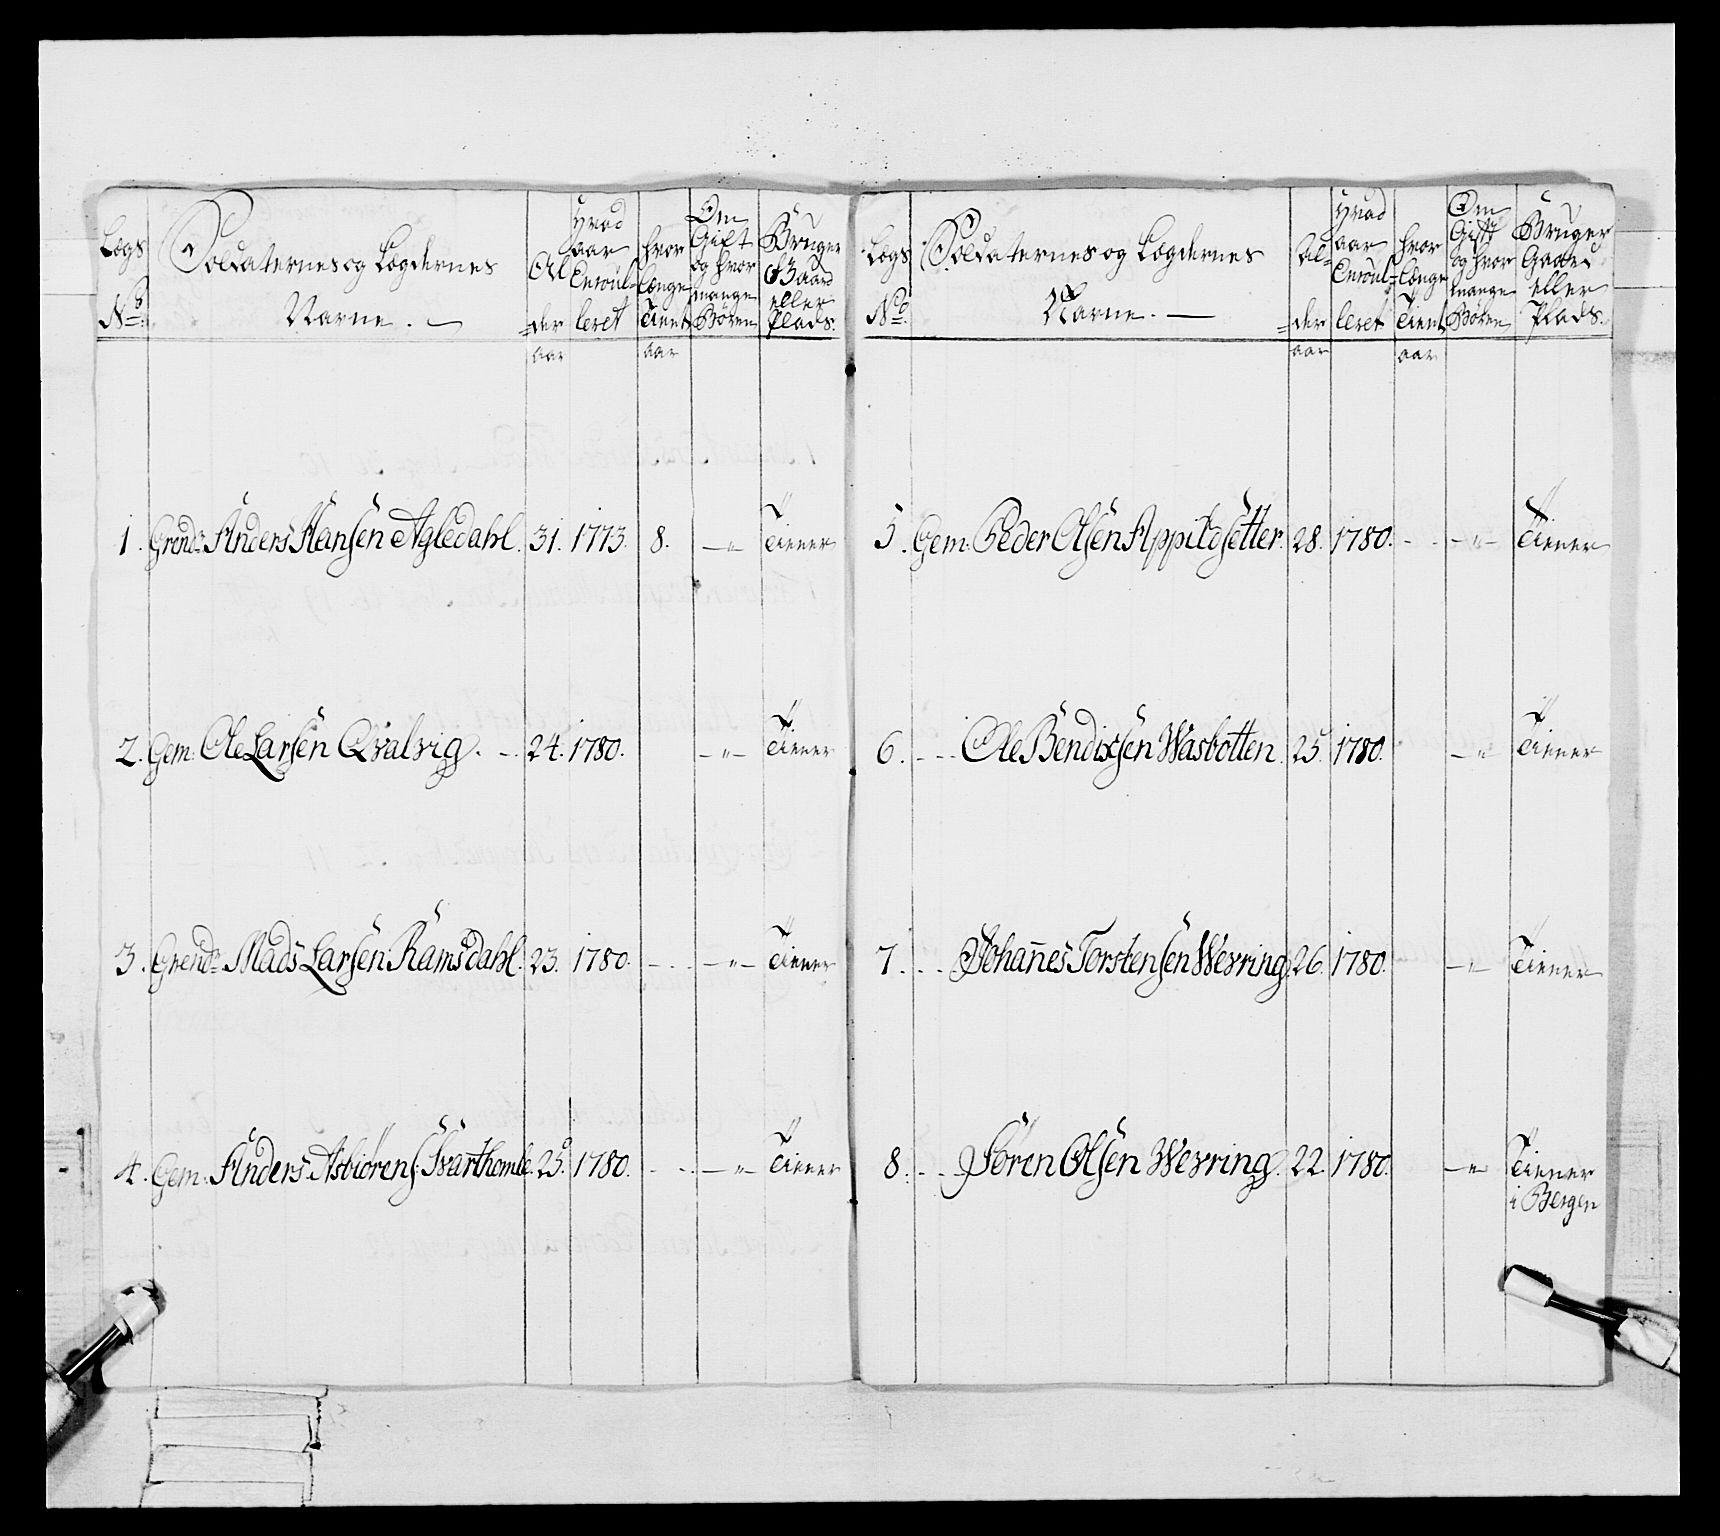 Lægs No. | Soldaternes og Lægdernes Navne. — | Al=der aar | Hvad aar Enroul=leret | hvor længe Tient aar | Om Gift og hvor mange Börn | Bruger Gaard eller Plads.
1. | Grend: Anders Hansen Agledahl. | 31. | 1773. | 8. | —"— | Tiener
2. | Gem: Ole Larsen Qvalvig. — | 24. | 1780. | | —"— | Tiener
3. | Grend: Mads Larsen Ramsdahl. | 23. | 1780. | - . - | —"— | Tiener
4. | Gem: Anders Asbiörens: Svarthemle. | 25. | 1780. | - . - | —"— | Tiener
Lægs No. | Soldaternes og Lægdernes Navne. — | Al=der aar | Hvad aar Enroul=leret | hvor længe Tient aar | Om Gift og hvor mange Börn | Bruger Gaard eller Plads.
5. | Gem: Peder Olsen Appildsetter. | 28. | 1780. | - . - | —"— | Tiener
6. | - - Ole Bendixsen Wasbotten. | 25. | 1780. | | —"— | Tiener
7. | - - Johañes Torstensen Wevring. | 26. | 1780. | | —"— | Tiener
8. | - - Sören Olsen Wevring. | 22. | 1780. | | —"— | Tiener
i Bergen